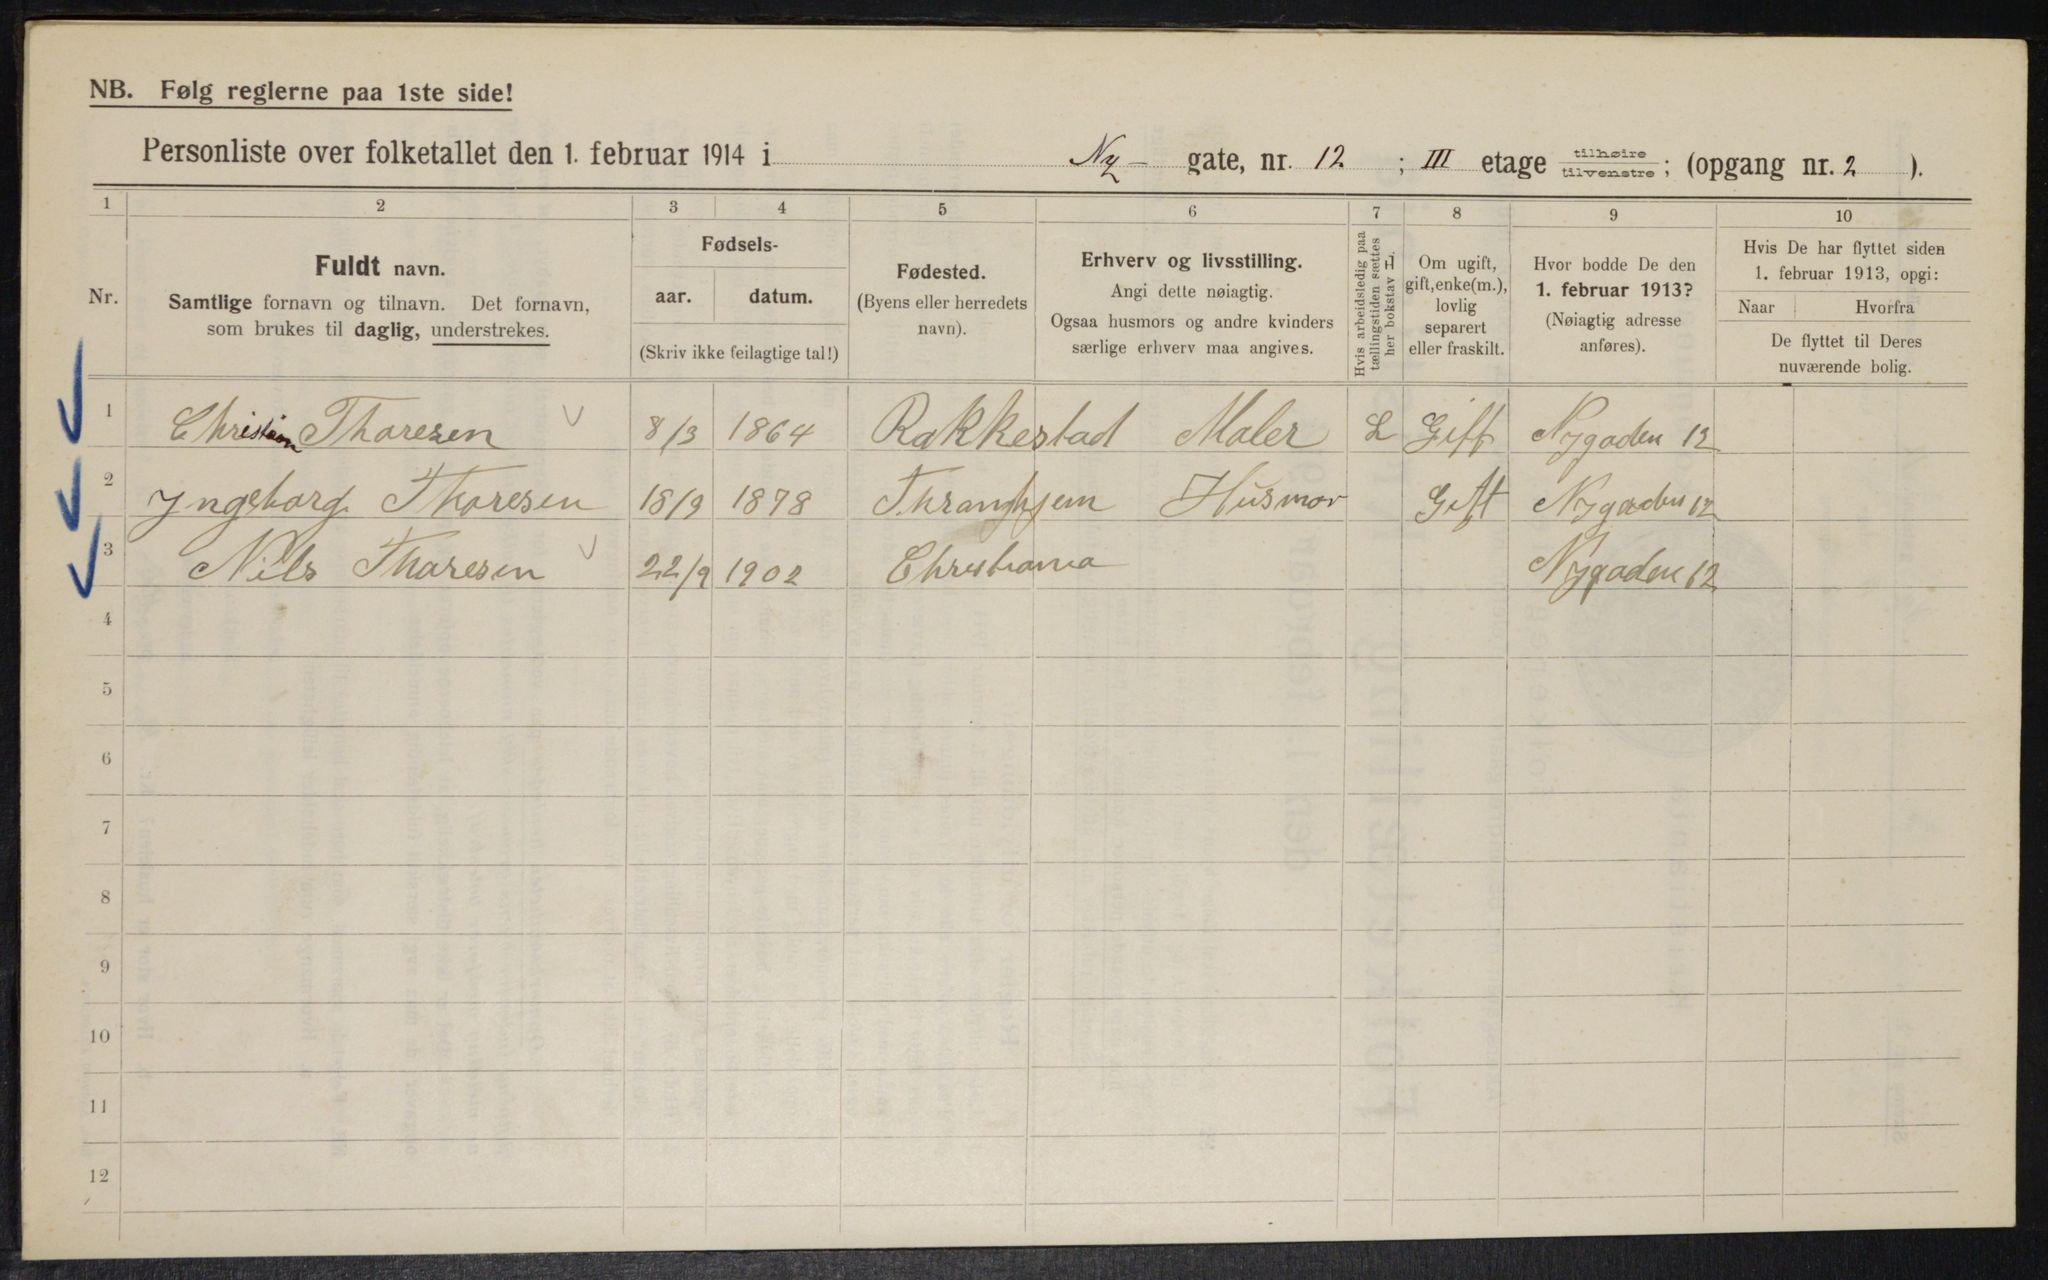 NB. Følg reglerne paa 1ste side!
Personliste over folketallet den 1. februar 1914 i Ny- gate, nr. 12 ; III etage tilhøire/tilvenstre; (opgang nr. 2 ).
1 2 3 4 5 6 7 8 9 10
Nr.
Fuldt navn.
Samtlige fornavn og tilnavn. Det fornavn,
som brukes til daglig, understrekes.
Fødsels-
aar. datum.
(Skriv ikke feilagtige tal!)
Fødested.
(Byens eller herredets
navn).
Erhverv og livsstilling.
Angi dette nøiagtig.
Ogsaa husmors og andre kvinders
særlige erhverv maa angives.
Hvis arbeidsledig paa
tællingstiden sættes
her bokstav L.
Om ugift,
gift, enke(m.),
lovlig
separert
eller fraskilt.
Hvor bodde De den
1. februar 1913?
(Nøiagtig adresse
anføres).
Hvis De har flyttet siden
1. februar 1913, opgi:
Naar Hvorfra
De flyttet til Deres
nuværende bolig.
1 Christian Thoresen 8/3 1864 Rakkestad Maler L Gift Nygaden 12
2 Yngeborg Thoresen 18/9 1878 Thranhjem Husmor Gift Nygaden 12
3 Nils Thoresen 22/9 1902 Christiania Nygaden 12
4
5
6
7
8
9
10
11
12